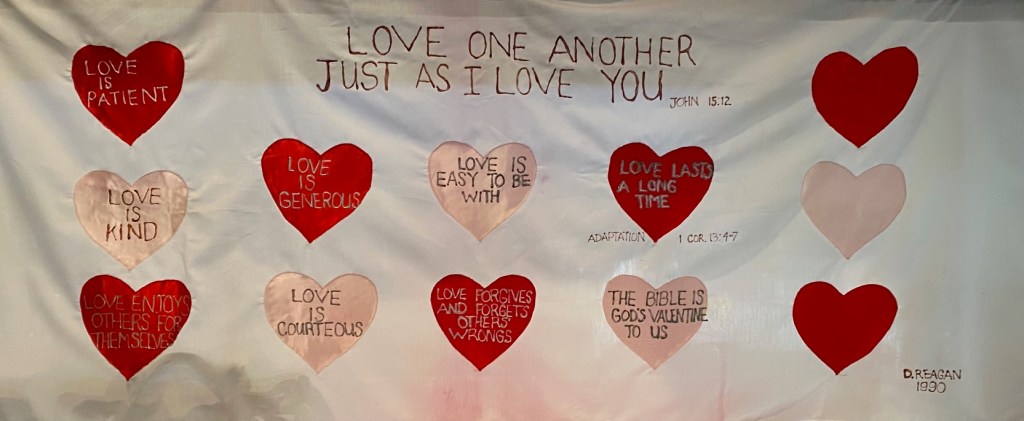 LOVE ONE ANOTHER
JUST AS I LOVE YOU
JOHN 15:12
LOVE
IS
PATIENT
LOVE
IS
GENEROUS
LOVE IS
EASY TO BE
WITH
LOVE LASTS
A LONG
TIME
LOVE
IS
KIND
ADAPTATION 1 COR. 13:4-7
LOVE ENJOYS
OTHERS FOR
THEMSELVES
LOVE
IS
COURTEOUS
LOVE FORGIVES
AND FORGETS
OTHERS'
WRONGS
THE BIBLE IS
GOD'S VALENTINE
TO US
D. REAGAN
1990